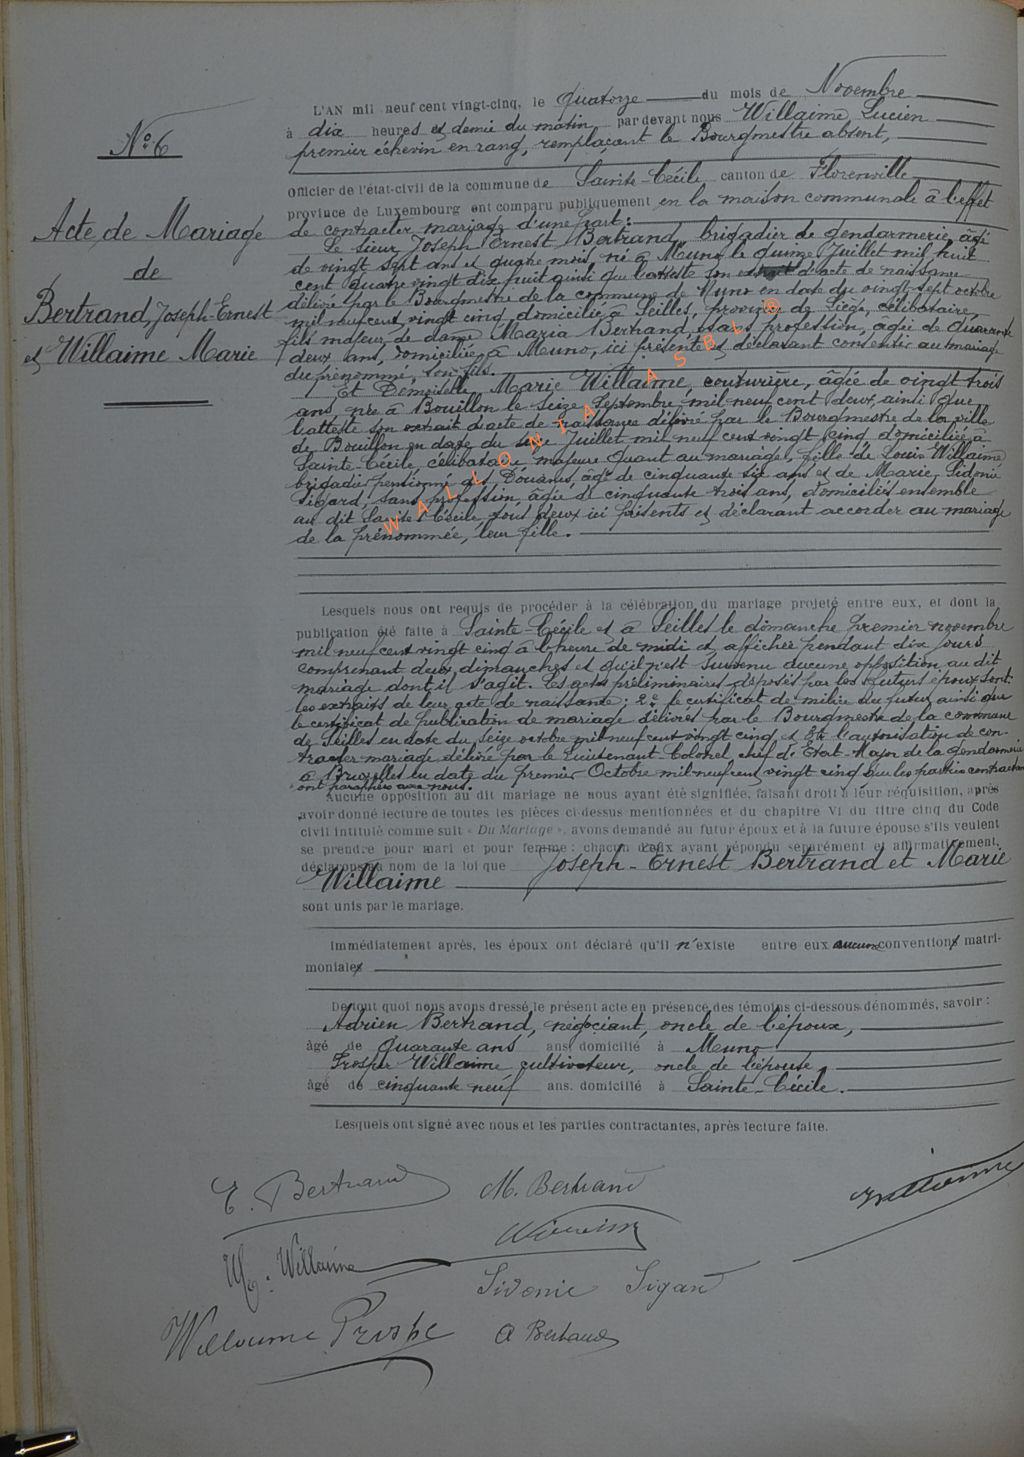 N° 6
Acte de Mariage
de
Bertrand, Joseph-Ernest
et Willaime Marie
L'AN mil neuf cent vingt-cinq, le Quatorze du mois de Novembre
à dix heures et demie du matin par devant nous Willaime, Lucien
premier échevin en rang, remplaçant le Bourgmestre absent,
Officier de l'état-civil de la commune de Sainte-Cécile canton de Florenville
province de Luxembourg ont comparu publiquement en la maison communale à l'effet
de contracter mariage d'une part:
Le sieur Joseph Ernest Bertrand, brigadier de gendarmerie, âgé
de vingt sept ans et quatre mois, né à Muno le quinze Juillet mil huit
cent quatre vingt dix huit ainsi que l'atteste son extrait d'acte de naissance
délivré par le Bourgmestre de la commune de Muno en date du vingt-sept octobre
mil neuf cent vingt cinq domicilié à Seilles, province de Liége, célibataire,
fils majeur, de dame Maria Bertrand, sans profession, âgée de quarante
deux ans, domiciliée à Muno, ici présente et déclarant consentir au mariage
du prénommé, son fils.
Et Demoiselle Marie Willaime, couturière, âgée de vingt trois
ans, née à Bouillon le seize Septembre mil neuf cent deux, ainsi que
l'atteste son extrait d'acte de naissance délivré par le Bourgmestre de la ville
de Bouillon en date du Juillet mil neuf cent vingt cinq domiciliée à
Sainte-Cécile, célibataire majeure quant au mariage, fille de Louis Willaime
brigadier pensionné des Douanes, âgé de cinquante six ans et de Marie, Sidonie
Sigard, sans profession, âgée de cinquante trois ans, domiciliés ensemble
au dit Sainte Cécile tous deux ici présents et déclarant accorder au mariage
de la prénommée, leur fille.
Lesquels nous ont requis de procéder à la célébration du mariage projeté entre eux, et dont la
publication été faite à Sainte-Cécile et à Seilles le dimanche premier novembre
mil neuf cent vingt cinq à l'heure de midi et affichée pendant dix jours
comprenant deux dimanches et qu'il n'est survenu aucune opposition au dit
mariage dont il s'agit. Les actes préliminaires déposés par les futurs époux sont
les extraits de leur acte de naissance; 2° le certificat de milice du futur ainsi que
le certificat de publication de mariage délivrés par le Bourgmestre de la commune
de Seilles en date du seize octobre mil neuf cent vingt cinq et l'autorisation de con-
tracter mariage délivré par le Lieutenant Colonel chef d'Etat-Major de la gendarmerie
à Bruxelles en date du premier Octobre mil neuf cent vingt cinq que les parties contractantes
ont paraphés avec nous.
Aucune opposition au dit mariage ne nous ayant été signifiée, faisant droit à leur réquisition, après
avoir donné lecture de toutes les pièces ci-dessus mentionnées et du chapitre VI du titre cinq du Code
civil intitulé comme suit « Du Mariage », avons demandé au futur époux et à la future épouse s'ils veulent
se prendre pour mari et pour femme: chacun d'eux ayant répondu séparément et affirmativement,
déclarons au nom de la loi que Joseph-Ernest Bertrand et Marie
Willaime
sont unis par le mariage.
Immédiatement après, les époux ont déclaré qu'il n'existe entre eux aucune conventions matri-
moniales
De tout quoi nous avons dressé le présent acte en présence des témoins ci-dessous dénommés, savoir:
Adrien Bertrand, négociant, oncle de l'époux,
âgé de Quarante ans ans domicilié à Muno
Prosper Willaime cultivateur, oncle de l'épouse,
âgé de cinquante neuf ans. domicilié à Sainte-Cécile.
Lesquels ont signé avec nous et les parties contractantes, après lecture faite.
E. Bertrand
M. Bertrand
Willaime
M. Willaime
Sidonie Sigard
Willaume Prospe
A Bertrand
WALLONIA ASBL ©